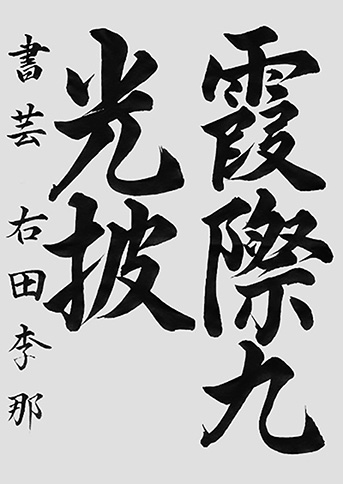 霞際九
光披
書芸 右田李那